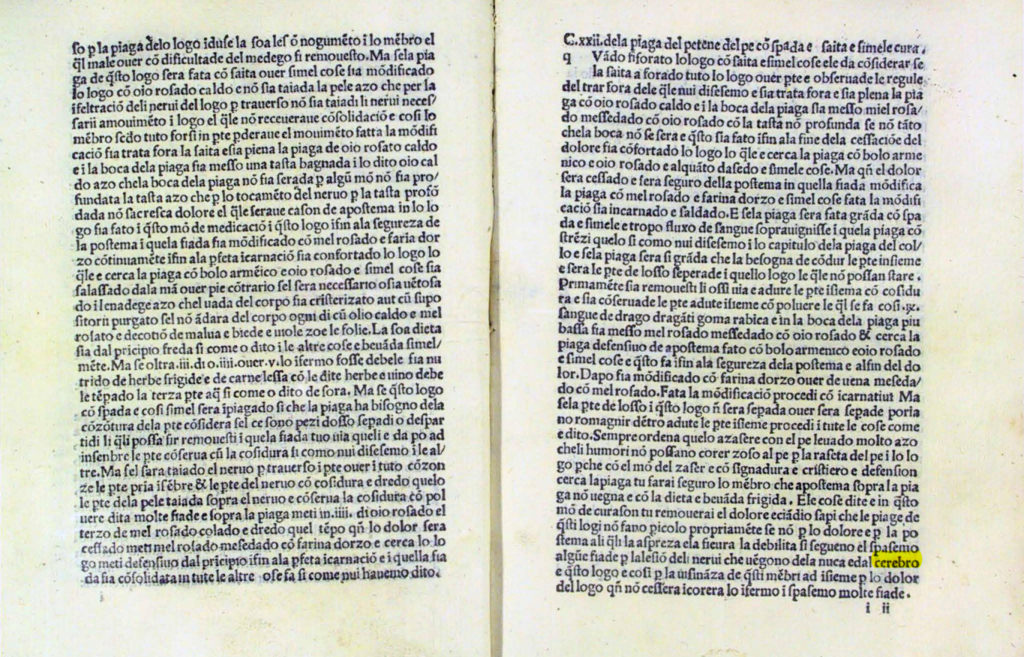 so p la piaga delo logo iduse la soa les õ nogumẽto i lo mẽbro el
ql̃ male ouer cõ dificultade del medego si remouesto. Ma se la pia
ga de q̃sto logo sera fata cõ saita ouer simel cose sia mõdificado
lo logo cõ oio rosado caldo e nõ sia taiada la pele azo che per la
ifeltració deli nerui del logo p trauerso nõ sia taiadi li nerui neces/
sarii amouimẽto i logo el q̃le nõ receueraue cõsolidació e cosi lo
mẽbro secdo tuto forsi in pte pderaue el mouimẽto fatta la mõdifi
cació sia trata fora la saita e sia piena la piaga de oio rosato caldo
e i la boca dela piaga sia messo una tasta bagnada i lo dito oio cal
do azo chela boca dela piaga nõ sia serada p algũ mõ nõ sia pro/
fundata la tasta azo che p lo tocamẽto del neruo p la tasta profõ
dada nõ sacresca dolore el q̃le seraue cason de apostema in lo lo
go sia fato i q̃sto mõ de medicació i q̃sto logo ifin ala segureza de
la postema i quela fiada sia mõdificado cõ mel rosado e faria dor
zo cõtinuamẽte ifin ala pfeta icarnació sia confortado lo logo lo
q̃le e cerca la piaga cõ bolo armẽico e oio rosado e simel cose sia
salassado dala mã ouer pie cõtrario sel sera necessario o sia uẽtosa
do i l enadege azo chel uada del corpo sia cristerizato aut cũ supo
sitorii purgato sel nõ ãdara del corpo ogni dì cũ olio caldo e mel
rosato e decotiõ de malua e biede e uiole zoe le folie. La soa dieta
sia dal pricipio freda si come o dito i le altre cose e beuãda simel/
mẽte. Ma se oltra .iii. di o .iiii. ouer .v. lo ifermo fosse debele sia nu
trido de herbe frigide e de carne lessa cõ le dite herbe e uino debe
le tẽpado la terza pte aq̃ si come o dito de sora. Ma se q̃sto logo
cõ spada e cosi simel sera ipiagado si che la piaga ha bisogno dela
cõzõtura dela pte cõsidera sel ce sono pezi dosso sepadi o despar
tidi li q̃li possa sir remouesti i quela fiada tuo uia queli e da po ad
insenbre le pte cõserua cũ la cosidura si como nui disemo i le al/
tre. Ma sel sara taiado el neruo p trauerso i pte ouer i tuto cõzon
ze le pte pria isẽbre & le pte del neruo cõ cosidura e dredo quelo
le pte dela pele taiada sopra el neruo e cõserua la cosidura cõ pol
uere dita molte fiade e sopra la piaga meti in .iiii. di oio rosado el
terzo de mel rosado colado e dredo quel tẽpo qñ lo dolor sera
cessado meti mel rosado mesedado cõ farina dorzo e cerca lo lo
go meti defensiuo dal pricipio ifin ala pfeta icarnació e i quella fia
da sia cõsolidata in tute le altre ose fa si come nui hauemo dito.
C. xxii. dela piaga del petene del pe cõ spada e saita e simele cura.
q Vãdo si forato lo logo cõ saita e simel cose ele da cõsiderar se
la saita a forado tuto lo logo ouer pte e obseruade le regule
del trar fora dele q̃le nui disesemo e sia trata fora e sia plena la pia
ga cõ oio rosado caldo e i la boca dela piaga sia messo miel rosa/
do messedado cõ oio rosado cõ la tasta nõ profunda se nõ tãto
chela boca nõ se sera e q̃sto sia fato ifin ala fine dela cessacióe del
dolore sia cõfortado lo logo lo q̃le e cerca la piaga cõ bolo arme
nico e oio rosado e alquãto dasedo e simele cose. Ma qñ el dolor
sera cessado e sera seguro della postema in quella fiada mõdifica
la piaga cõ mel rosado e farina dorzo e simel cose fata la mõdifi
cació sia incarnado e saldado. E sela piaga sera fata grãda cõ spa
da e simele e tropo fluxo de sangue soprauignisse i quela piaga cõ
strẽzi quelo si como nui disesemo i lo capitulo dela piaga del col/
lo e sela piaga sera si grãda che la besogna de cõdur le pte insieme
e sera le pte de losso seperade i quello logo le q̃le nõ possan stare.
Primamẽte sia remouesti li ossi uia e adure le pte isema cõ cosidu
ra e sia cõseruade le pte adute isieme cõ poluere le ql̃ se fa cosi. ꝶ.
sangue de drago dragãti goma rabica e in la boca dela piaga piu
bassa sia messo mel rosado messedado cõ oio rosado & cerca la
piaga defensiuo de apostema fato cõ bolo armenico e oio rosado
e simel cose e q̃sto sia ifin ala segureza dela postema e alfin del do
lor. Dapo sia mõdificado cõ farina dorzo ouer de uena meseda/
do cõ mel rosado. Fata la mõdificació procedi cõ icarnatiui Ma
sela pte de losso i q̃sto logo ñ sera sepada ouer sera sepade poria
no romagnir dẽtro adute le pte isieme procedi i tute le cose come
e dito. Sempre ordena quelo azasere con el pe leuado molto azo
cheli humori nõ possano corer zoso al pe p la rasceta del pe i lo lo
go pche cõ el mõ del zaser e cõ signadura e cristiero e defension
cerca la piaga tu farai seguro lo mẽbro che apostema sopra la pia
ga nõ uegna e cõ la dieta e beuãda frigida. Ele cose dite e in q̃sto
mõ de curason tu remouerai el dolore eciãdio sapi che le piage de
q̃sti logi nõ fano picolo propriamẽte se nõ p lo dolore e p la po
stema ali q̃li la aspreza ela sicura la debilita si segueno el spasemo
algũe fiade p la lesiõ deli nerui che uẽgono dela nuca e dal cerebro
e q̃sto logo e cosi p la uisinãza de q̃sti mẽbri ad isieme p lo dolor
del logo qñ nõ cessera icorera lo ifermo i spasemo molte fiade.
i ii